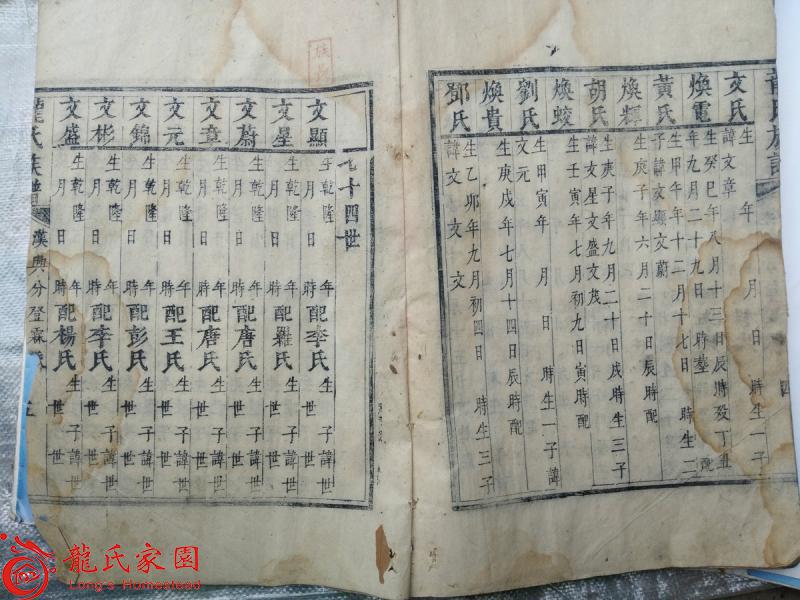 龍氏族譜
四
文氏 生 年 月 日 時生一子
諱文章
煥電 生癸巳年八月十三日辰時歿丁丑
年九月二十九日 時葬 配
黃氏 生甲午年十二月十七日 時生二
子諱文顯文蔚
煥輝 生庚子年六月二十日辰時配
胡氏 生庚子年九月二十日戌時生三子
諱文星文盛文茂
煥蛟 生壬寅年七月初九日寅時配
劉氏 生甲寅年 月 日 時生一子諱
文元
煥貴 生庚戌年七月十四日辰時配
鄧氏 生乙卯年九月初四日 時生三子
諱文 文
七十四世
文顯 生乾隆 年 月 日 時 配李氏 生 子諱世 世 世
文星 生乾隆 年 月 日 時 配羅氏 生 子諱世 世 世
文蔚 生乾隆 年 月 日 時 配唐氏 生 子諱世 世 世
文章 生乾隆 年 月 日 時 配唐氏 生 子諱世 世 世
文元 生乾隆 年 月 日 時 配王氏 生 子諱世 世 世
文錦 生乾隆 年 月 日 時 配彭氏 生 子諱世 世 世
文彬 生乾隆 年 月 日 時 配李氏 生 子諱世 世 世
文盛 生乾隆 年 月 日 時 配楊氏 生 子諱世 世 世
龍氏族譜 漢興分登霖
龍氏家園
Long's Homestead